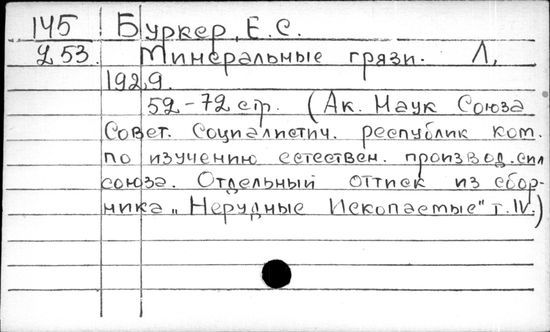 145 Буркер, Е. С.
253 Минеральные грязи. Л,
1929.
52-72 стр. (Ак. Наук Союза
Совет. Социалистич. республик ком.
по изучению естествен. производ. сил
союза. Отдельный оттиск из сбор-
ника „Нерудные Ископаемые" т. IV.)